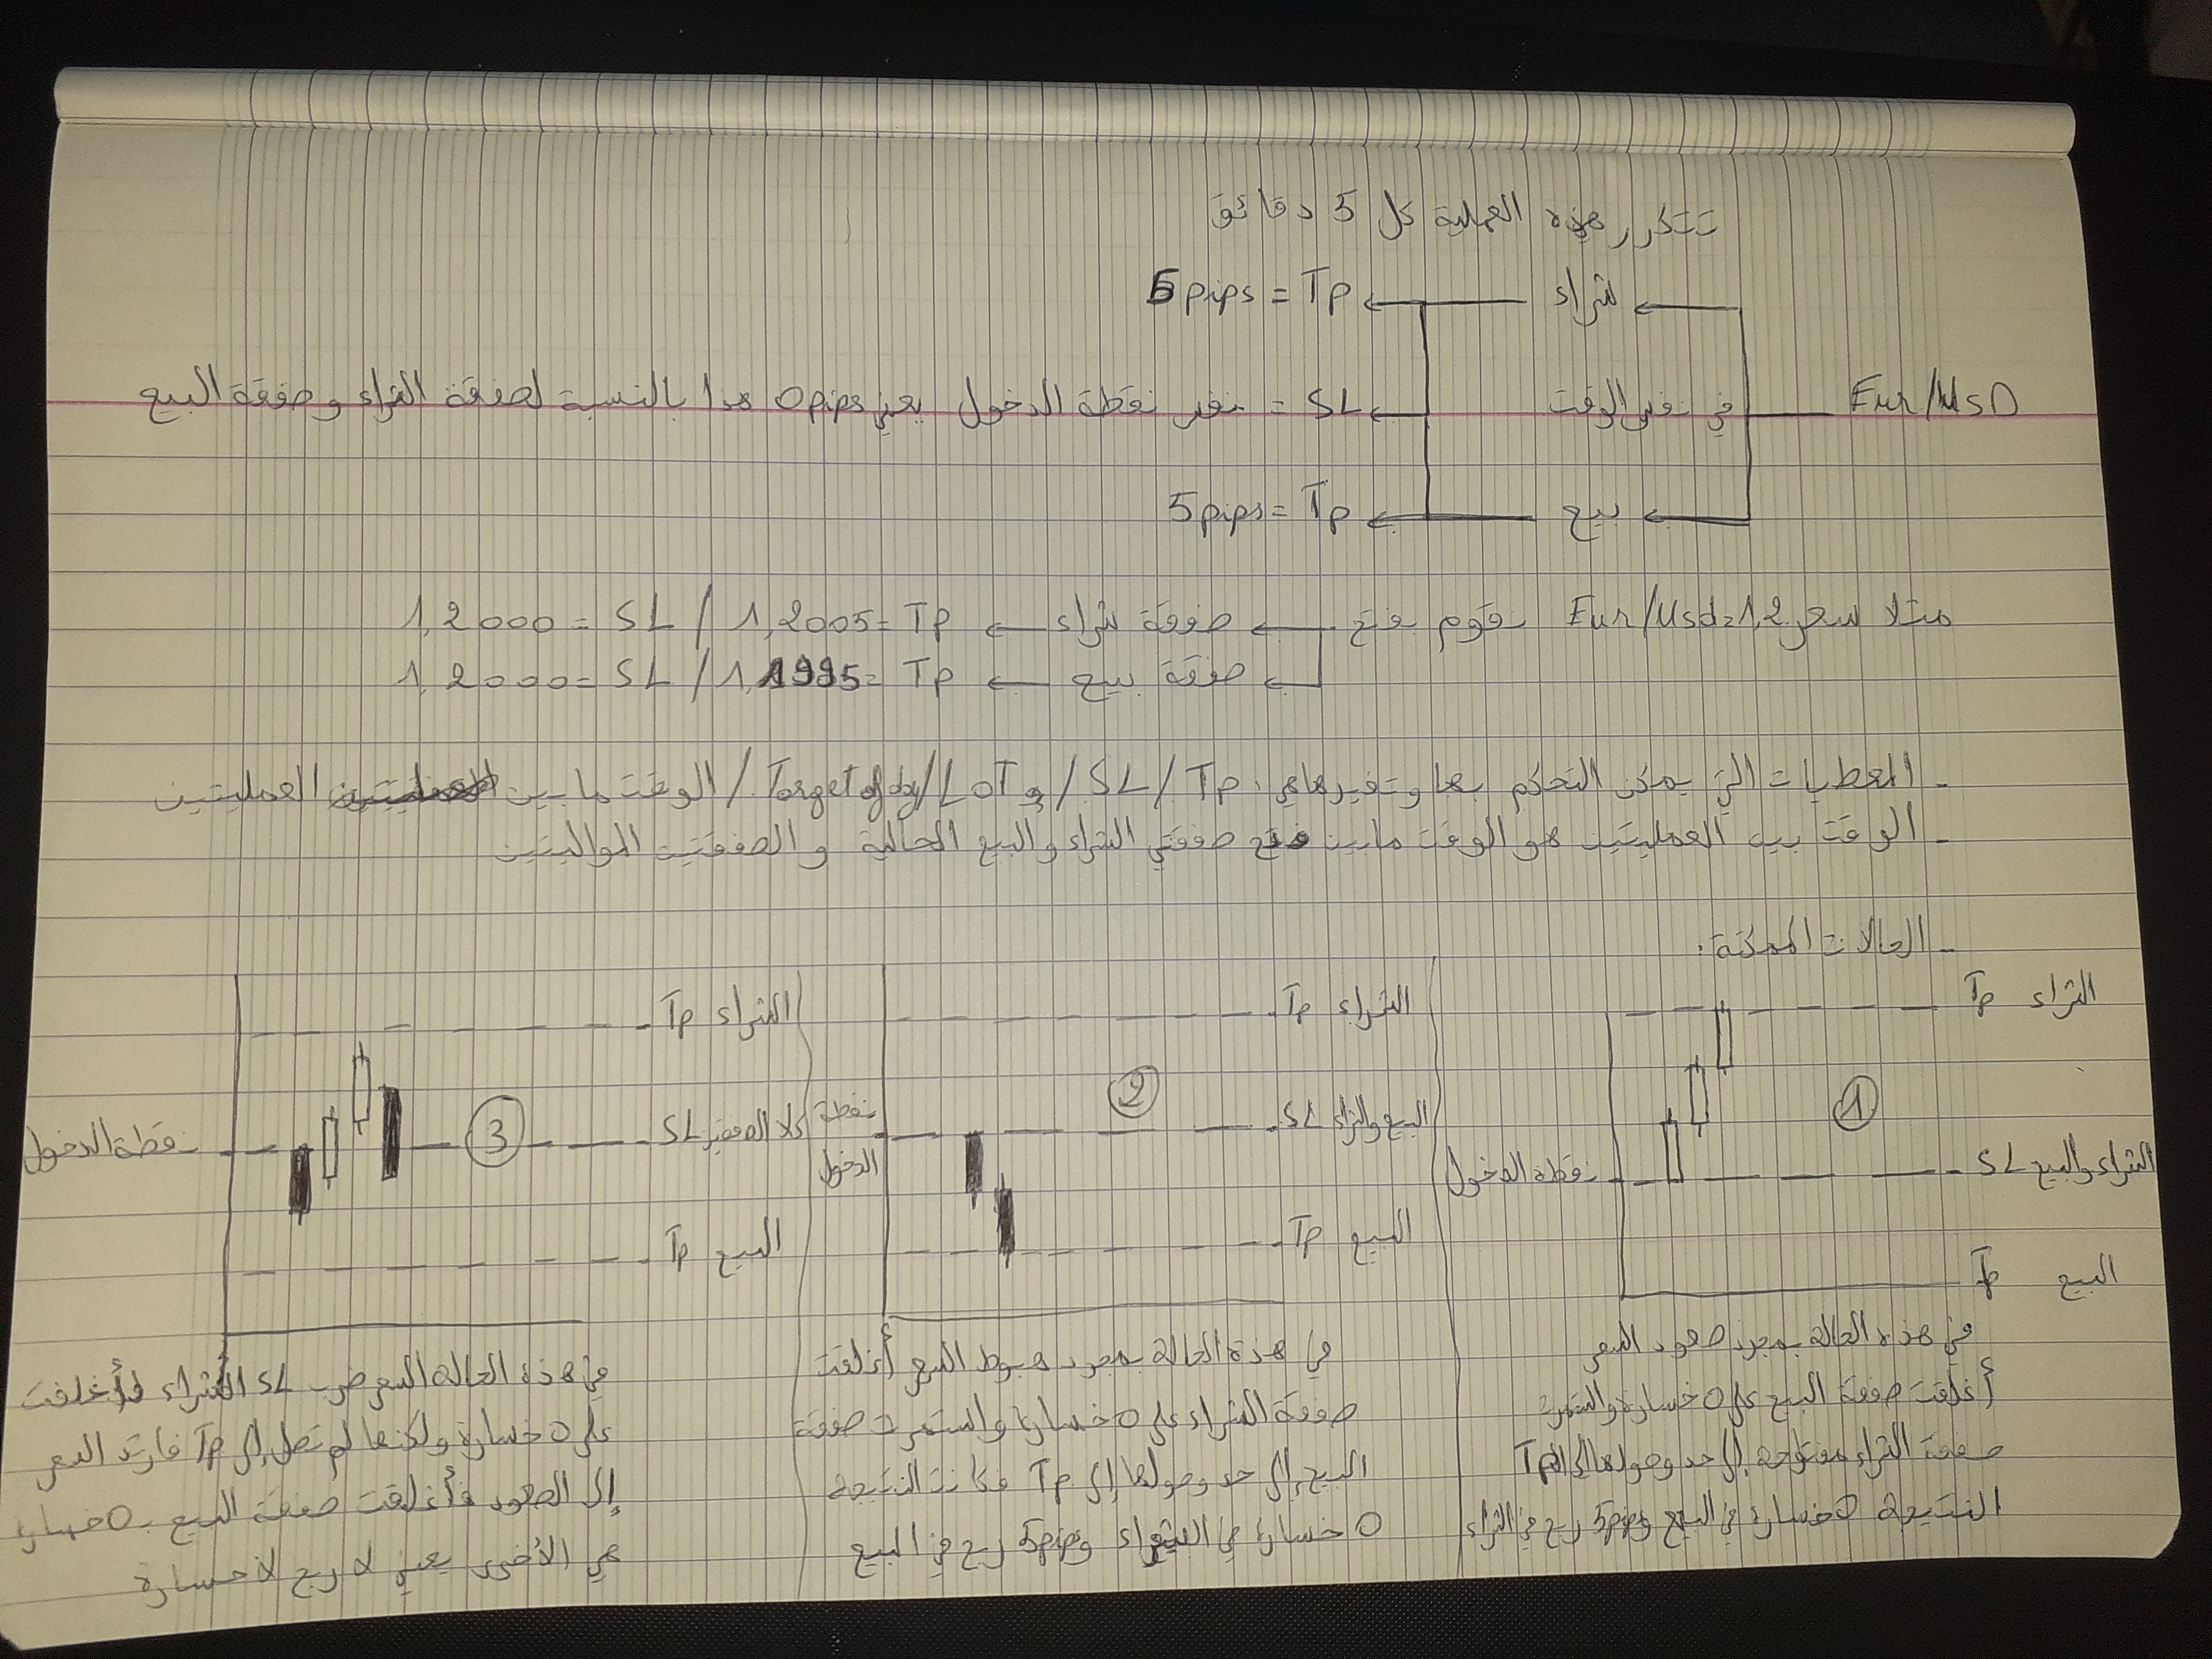 تتكرر هذه العملية كل 5 دقائق
شراء
5pips = Tp
Eur/UsD
في نفس الوقت
SL = نفس نقطة الدخول يعني 0pips هدا بالنسبة لصفقة الشراء وصفقة البيع
بيع
5pips = Tp
متلا سعر Eur/Usd=1,2 نقوم بفتح صفقة شراء Tp =1,2005 / SL =1,2000
صفقة بيع Tp =1,1995 / SL =1,2000
- المعطيات التي يمكن التحكم بها وتغيرها هي: Tp / SL / و LOT / Target of day / الوقت ما بين العمليتين
- الوقت بين العمليتين هو الوقت مابين فتح صفقتي الشراء والبيع الحالية والصفقتين المواليتين
- الحالات الممكنة:
الشراء Tp
①
الشراء والبيع SL
نقطة الدخول
البيع Tp
في هذه الحالة بمجرد صعود السعر
أغلقت صفقة البيع على 0 خسارة واستمرت
صفقة الشراء مفتوحة إلى حد وصولها إلى Tp
النتيجة 0 خسارة في البيع و 5pips ربح في الشراء
الشراء Tp
②
البيع والشراء SL
نقطة
الدخول
البيع Tp
في هذة الحالة بمجرد هبوط السعر أغلقت
صفقة الشراء على 0 خسارة واستمرت صفقة
البيع إلى حد وصولها إلى Tp فكانت النتيجة
0 خسارة في الشراء و 5pips ربح في البيع
الشراء Tp
③
كلا الصفقتين SL
نقطة الدخول
البيع Tp
في هذه الحالة السعر ضرب SL الشراء وأغلقت
على 0 خسارة ولكنها لم تصل إلى Tp فارتد السعر
إلى الصعود فأغلقت صفقة البيع بـ 0 خسارة
هي الأخرى يعني لا ربح لا خسارة